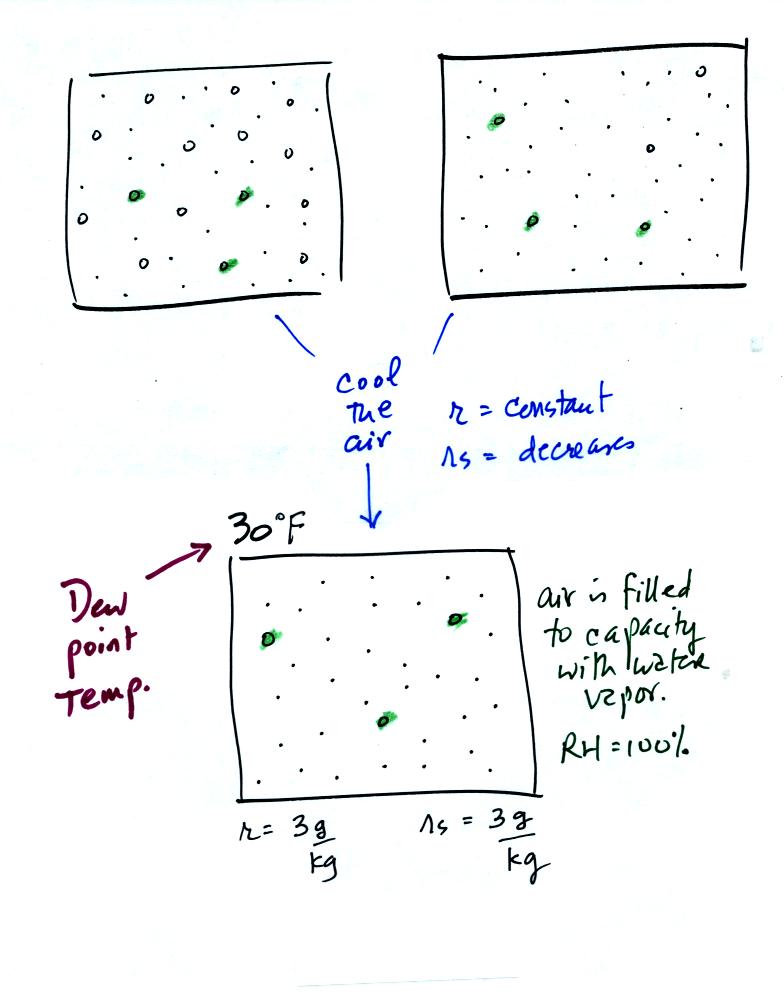 cool
the
air
r = constant
rs = decreases
30°F
Dew
point
Temp.
air is filled
to capacity
with water
vapor.
RH = 100%
r = 3 g/kg
rs = 3 g/kg